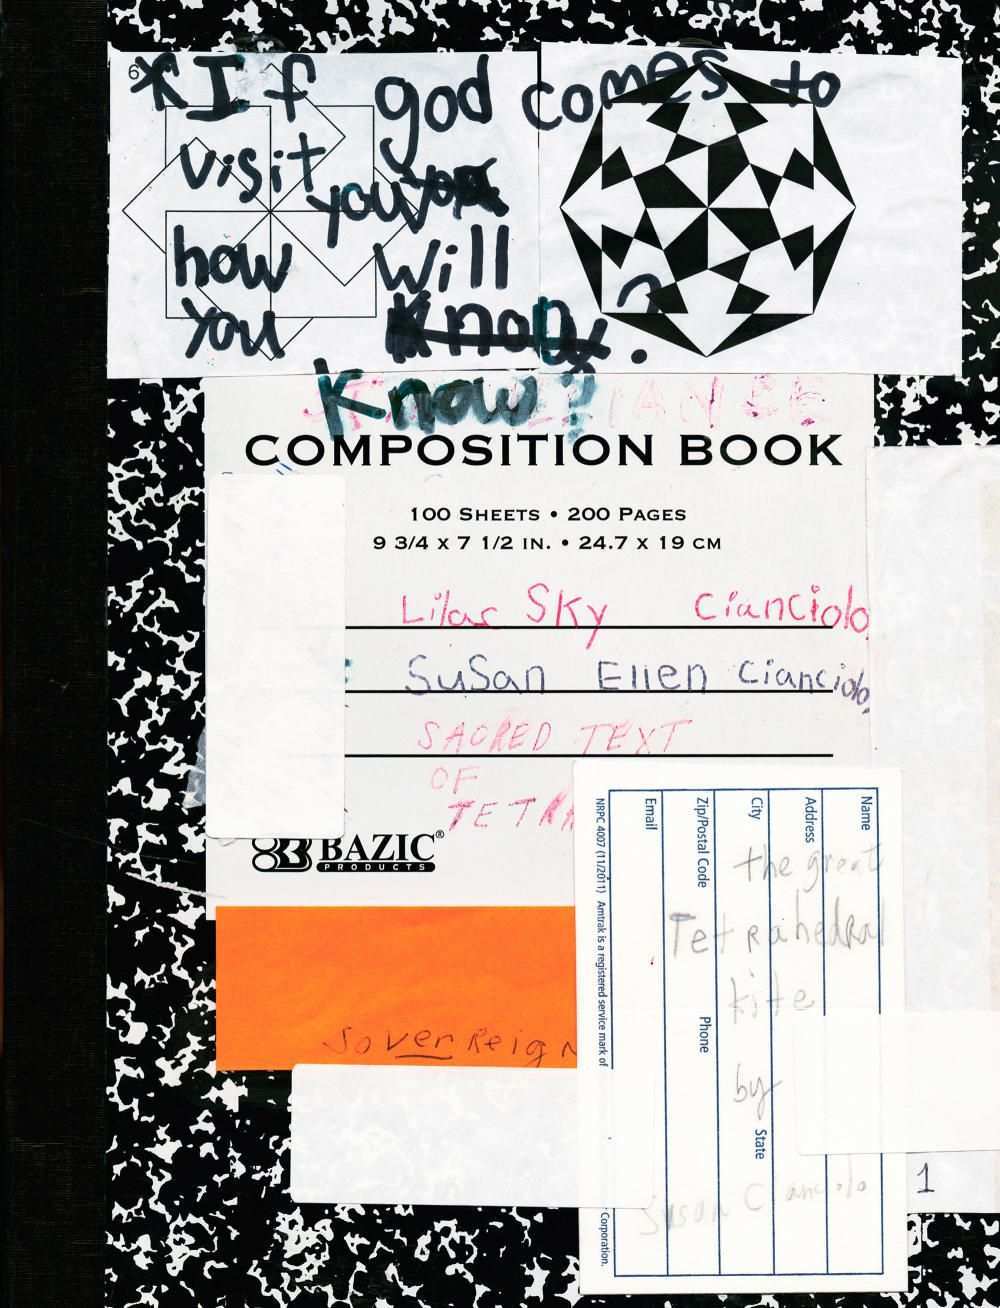 6
*If god comes to
visit you
how will
you know.?
Know?
COMPOSITION BOOK
100 SHEETS • 200 PAGES
9 3/4 X 7 1/2 IN. • 24.7 X 19 CM
Lilac Sky Cianciolo
SuSan Ellen Cianciolo
SACRED TEXT
OF
TETRA
BAZIC®
PRODUCTS
SoverReign
Name
Address
City
State
Zip/Postal Code
Phone
Email
NRPC 4007 (11/2011) Amtrak is a registered service mark of
Corporation.
the great
TetRahedRal
kite
by
SUSAN Cianciolo
1